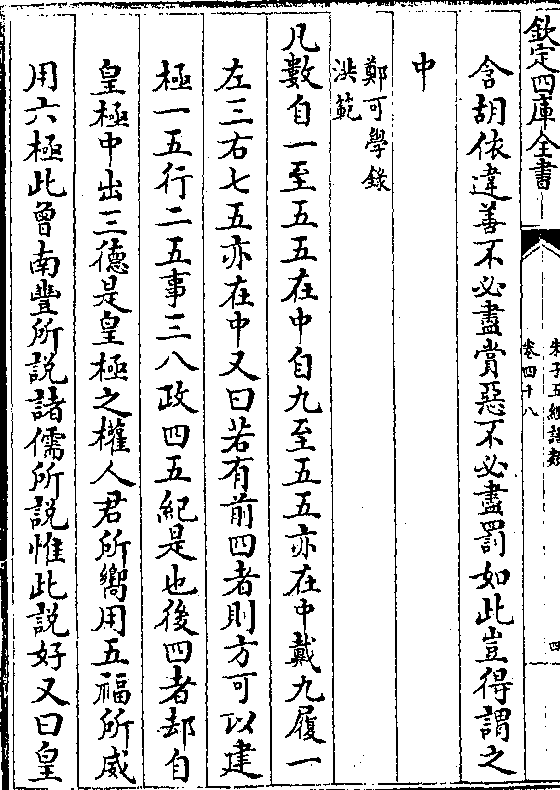 欽定四庫全書
朱子五經語類
卷四十八
四
含胡依違善不必盡賞惡不必盡罰如此豈得謂之
中
鄭可學錄
洪範
凡數自一至五五在中自九至五五亦在中戴九履一
左三右七五亦在中又曰若有前四者則方可以建
極一五行二五事三八政四五紀是也後四者却自
皇極中出三德是皇極之權人君所嚮用五福所威
用六極此曾南豐所説諸儒所説惟此説好又曰皇